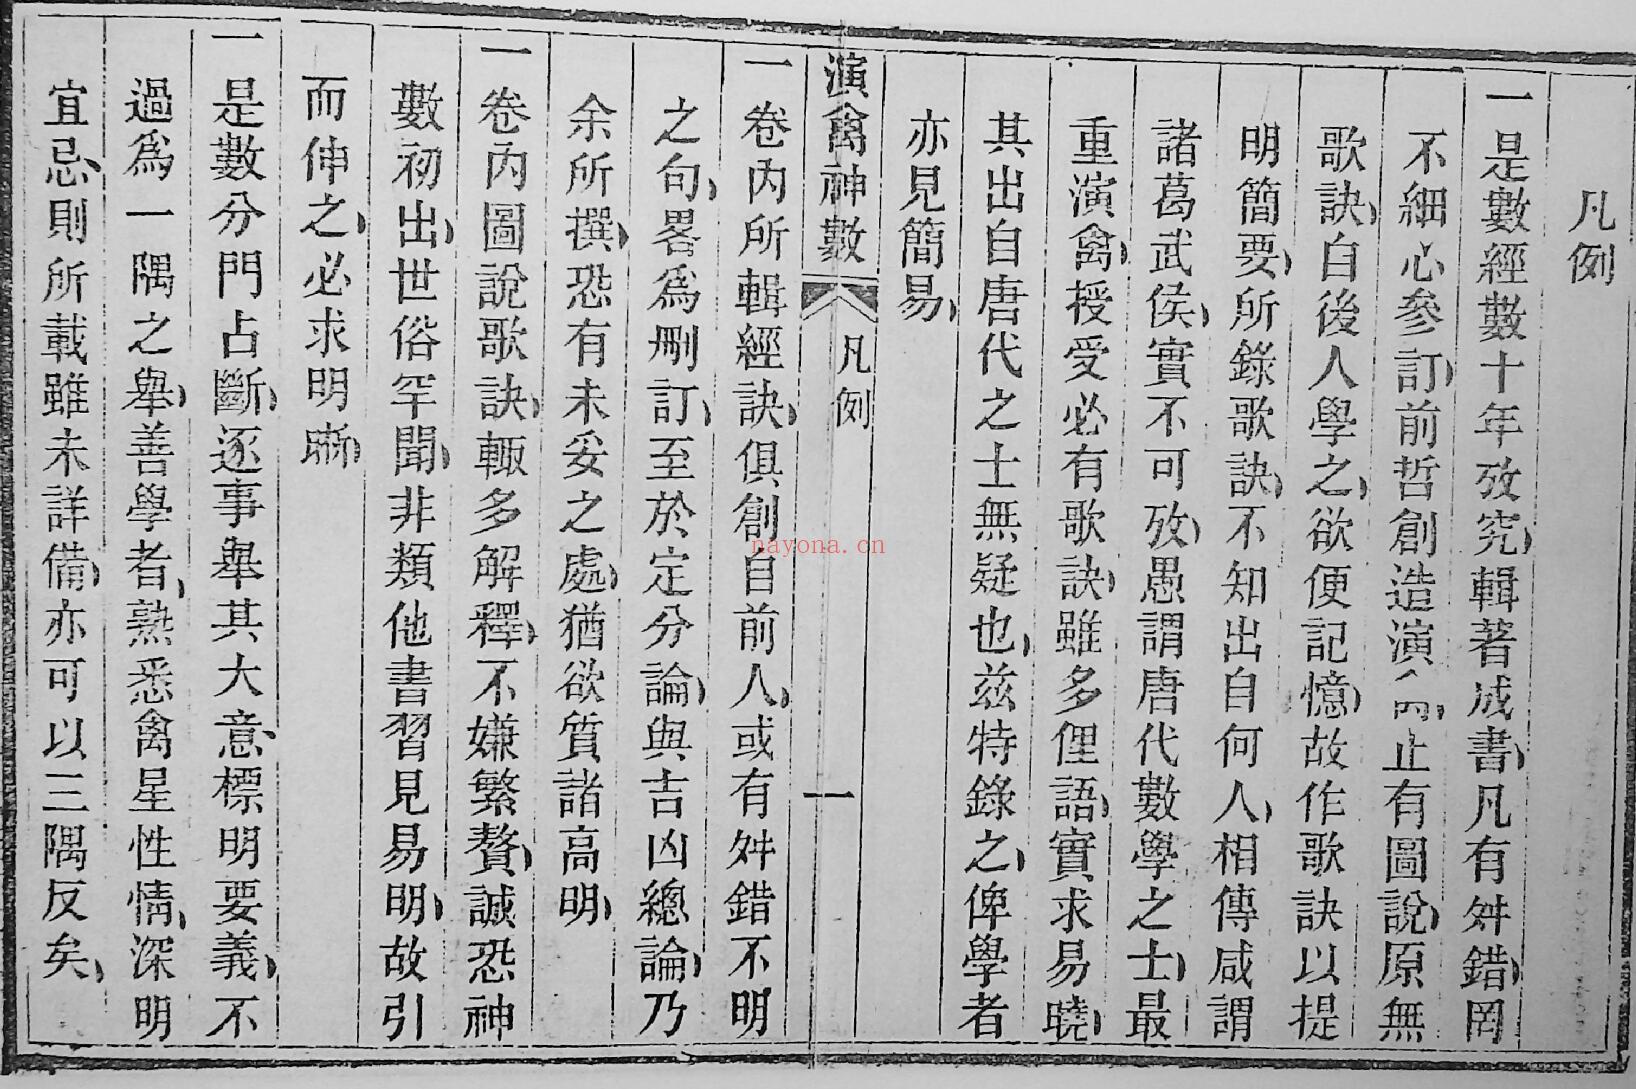 凡例
一是數經數十年攷究輯著成書凡有舛錯罔
不細心參訂前哲創造演禽止有圖說原無
歌訣自後人學之欲便記憶故作歌訣以提
明簡要所錄歌訣不知出自何人相傳咸謂
諸葛武侯實不可攷愚謂唐代數學之士最
重演禽授受必有歌訣雖多俚語實求易曉
其出自唐代之士無疑也茲特錄之俾學者
亦見簡易
演禽神數 凡例 一
一卷內所輯經訣俱創自前人或有舛錯不明
之句畧爲刪訂至於定分論與吉凶總論乃
余所撰恐有未妥之處猶欲質諸高明
一卷內圖說歌訣輙多解釋不嫌繁贅誠恐神
數初出世俗罕聞非類他書習見易明故引
而伸之必求明晰
一是數分門占斷逐事舉其大意標明要義不
過爲一隅之舉善學者熟悉禽星性情深明
宜忌則所載雖未詳備亦可以三隅反矣
nayona.cn